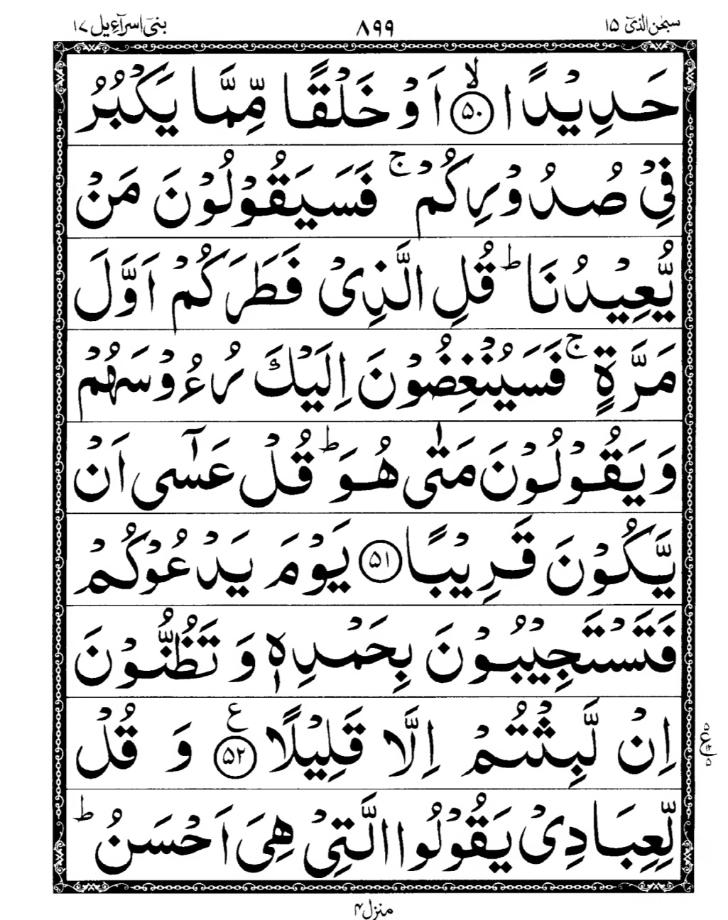 سبحٰن الذیٓ ۱۵ ۸۹۹ بنیٓ اسرآءیل ۱۷
حَدِيْدًا ۙ﴿۵۰﴾ اَوْ خَلْقًا مِّمَّا يَكْبُرُ
فِيْ صُدُوْرِكُمْ ۚ فَسَيَقُوْلُوْنَ مَنْ
يُّعِيْدُنَا ؕ قُلِ الَّذِيْ فَطَرَكُمْ اَوَّلَ
مَرَّةٍ ۚ فَسَيُنْغِضُوْنَ اِلَيْكَ رُءُوْسَهُمْ
وَيَقُوْلُوْنَ مَتٰى هُوَ ؕ قُلْ عَسٰۤى اَنْ
يَّكُوْنَ قَرِيْبًا ﴿۵۱﴾ يَوْمَ يَدْعُوْكُمْ
فَتَسْتَجِيْبُوْنَ بِحَمْدِهٖ وَ تَظُنُّوْنَ
اِنْ لَّبِثْتُمْ اِلَّا قَلِيْلًا ﴿۵۲﴾ ع وَ قُلْ
لِّعِبَادِيْ يَقُوْلُوا الَّتِيْ هِيَ اَحْسَنُ ؕ
منزل ۴